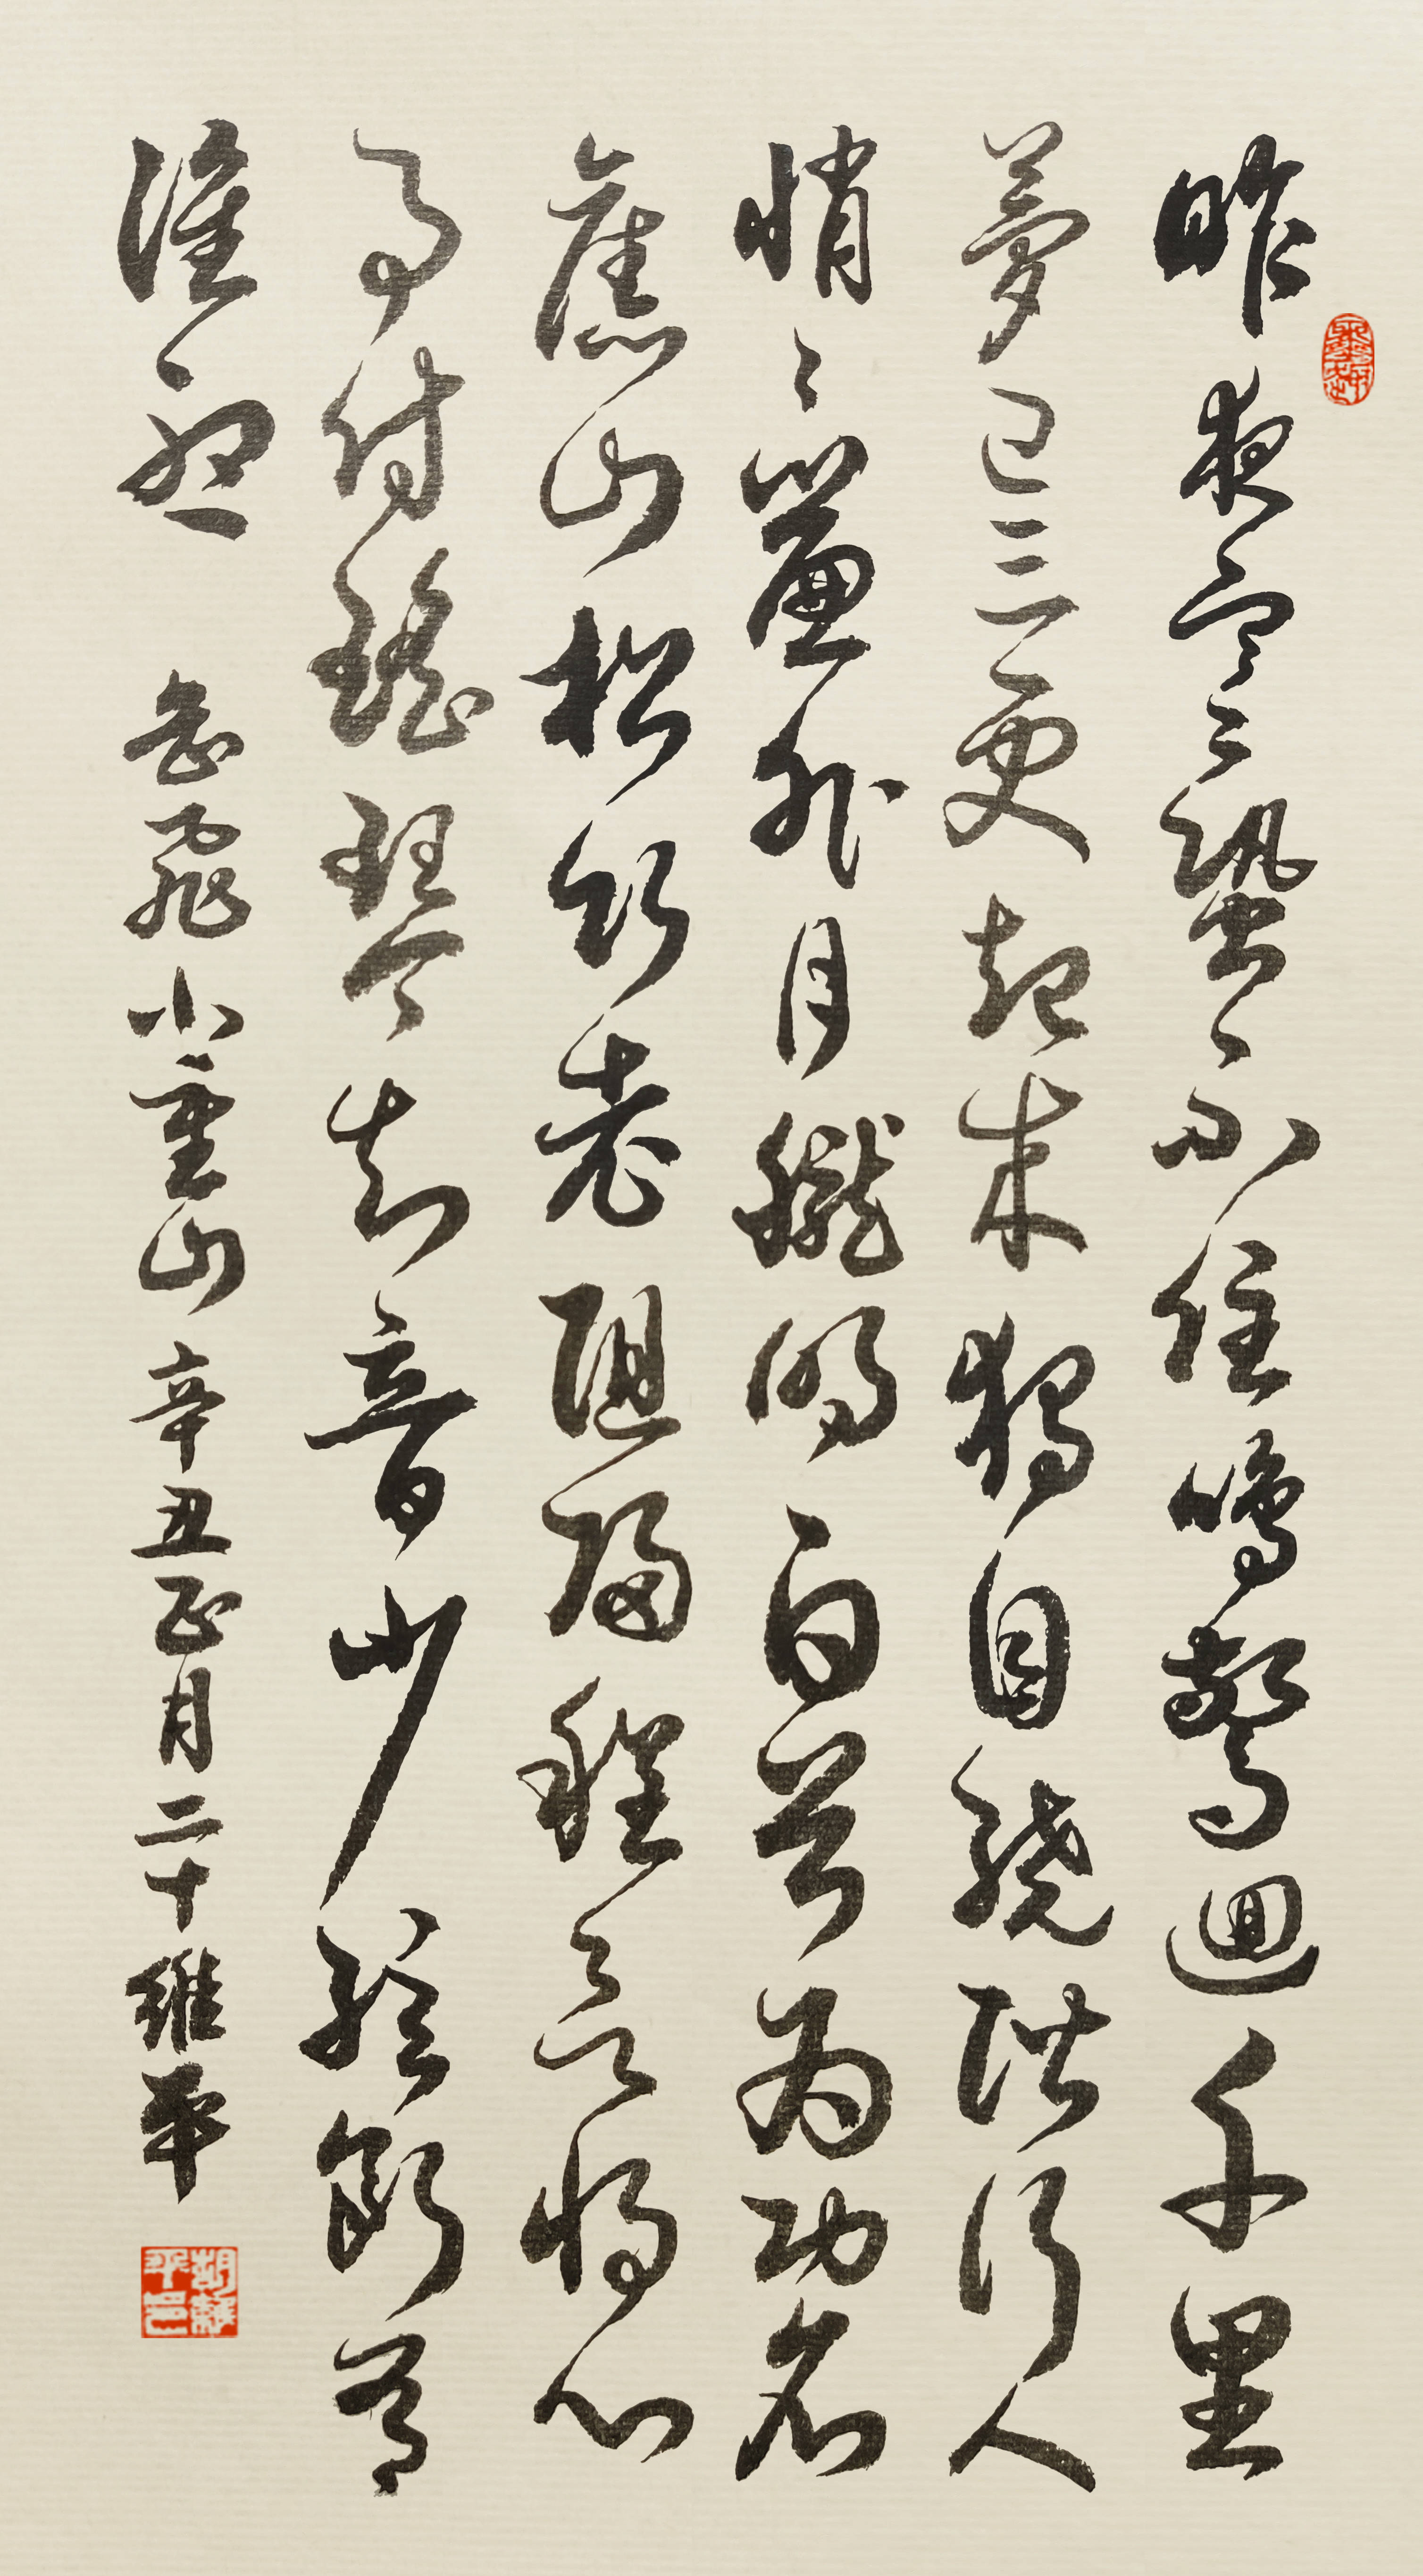 昨夜寒蛩不住鳴驚迴千里
夢已三更起来獨自繞階行人
悄〻簾外月朧明白首為功名
舊山松竹老阻歸程欲將心
事付瑤琴知音少絃斷有
誰聽 岳飛小重山 辛丑正月二十維平
胡維平印